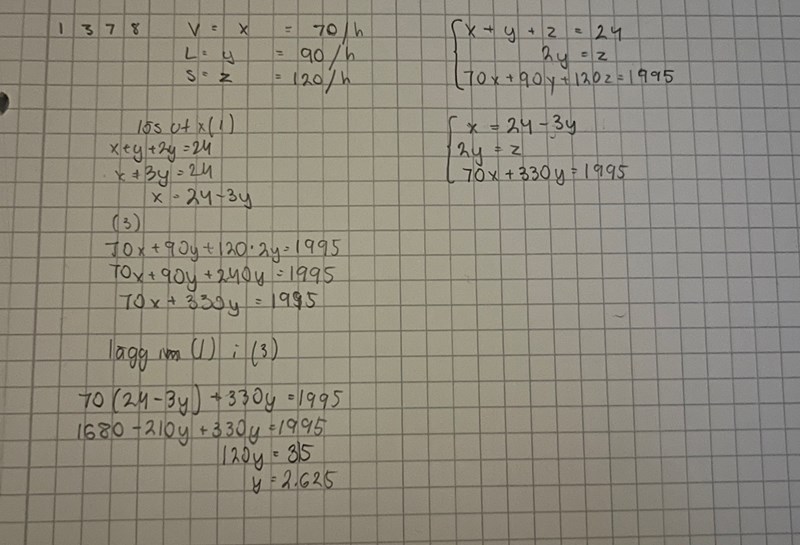 1378 V = x = 70/h
L = y = 90/h
S = z = 120/h
x + y + z = 24
2y = z
70x + 90y + 120z = 1995
lös ut x (1)
x + y + 2y = 24
x + 3y = 24
x = 24 - 3y
x = 24 - 3y
2y = z
70x + 330y = 1995
(3)
70x + 90y + 120 · 2y = 1995
70x + 90y + 240y = 1995
70x + 330y = 1995
lägg (1) i (3)
70(24 - 3y) + 330y = 1995
1680 - 210y + 330y = 1995
120y = 315
y = 2.625